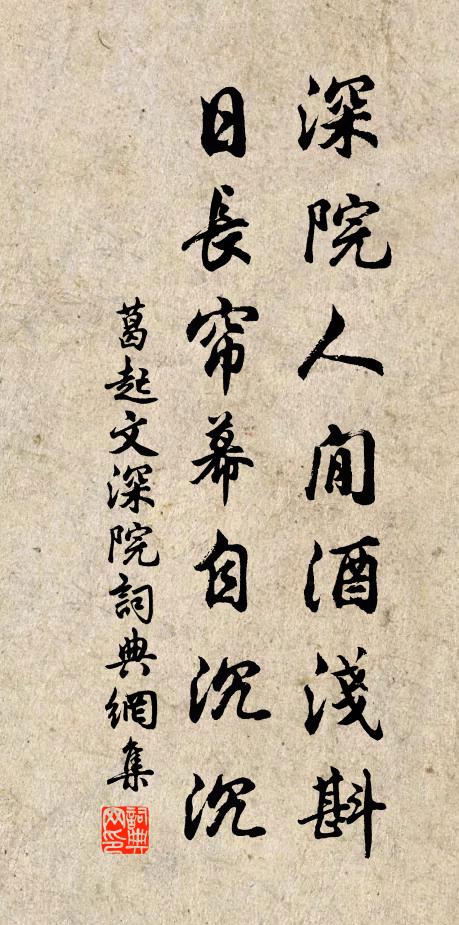 深院人閒酒淺斟
日長帘幕自沉沉
葛起文深院詞典網集
詞典网印